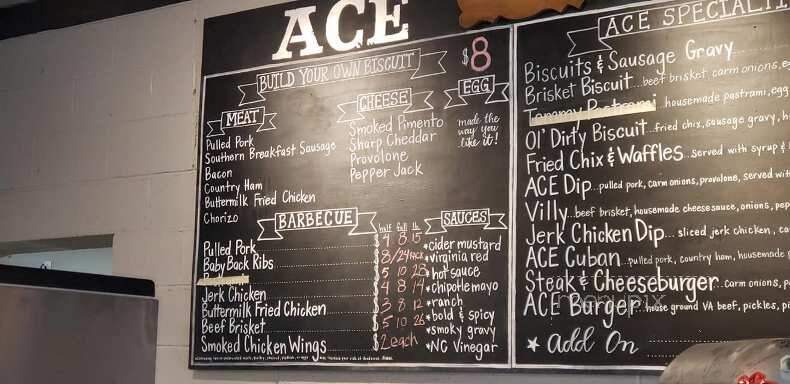 ACE
BUILD YOUR OWN BISCUIT $8
MEAT
Pulled Pork
Southern Breakfast Sausage
Bacon
Country Ham
Buttermilk Fried Chicken
Chorizo
CHEESE
Smoked Pimento
Sharp Cheddar
Provolone
Pepper Jack
EGG
made the
way you
like it!
BARBECUE half full lb
Pulled Pork $4 8 15
Baby Back Ribs 8/24
$5 10 28
Jerk Chicken $4 8 14
Buttermilk Fried Chicken $3 8 12
Beef Brisket $5 10 26
Smoked Chicken Wings $2 each
SAUCES
*cider mustard
*virginia red
*hot sauce
*chipotle mayo
*ranch
*bold & spicy
*smoky gravy
*NC Vinegar
ACE SPECIALTI
Biscuits & Sausage Gravy
Brisket Biscuit...beef brisket, carm onions, eg
housemade pastrami, egg
Ol' Dirty Biscuit...fried chix, sausage gravy, h
Fried Chix & Waffles...served with syrup &
ACE Dip...pulled pork, carm onions, provolone, served wit
Villy...beef brisket, housemade cheese sauce, onions, pep
Jerk Chicken Dip... sliced jerk chicken, ca
ACE Cuban...pulled pork, country ham, housemade
Steak & Cheeseburger...carm onions, p
ACE Burger...house ground VA beef, pickles, pi
★ Add On